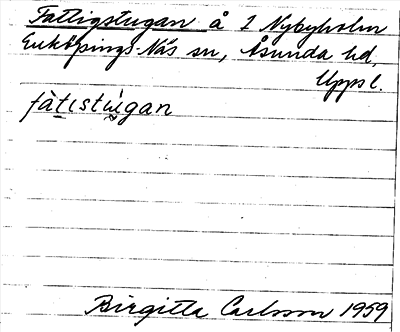 Fattigstugan å 1 Nybyholm
Enköpings-Näs sn, Åsunda hd,
Upps l.
fàtıstù̀gan
Birgitta Carlsson 1959